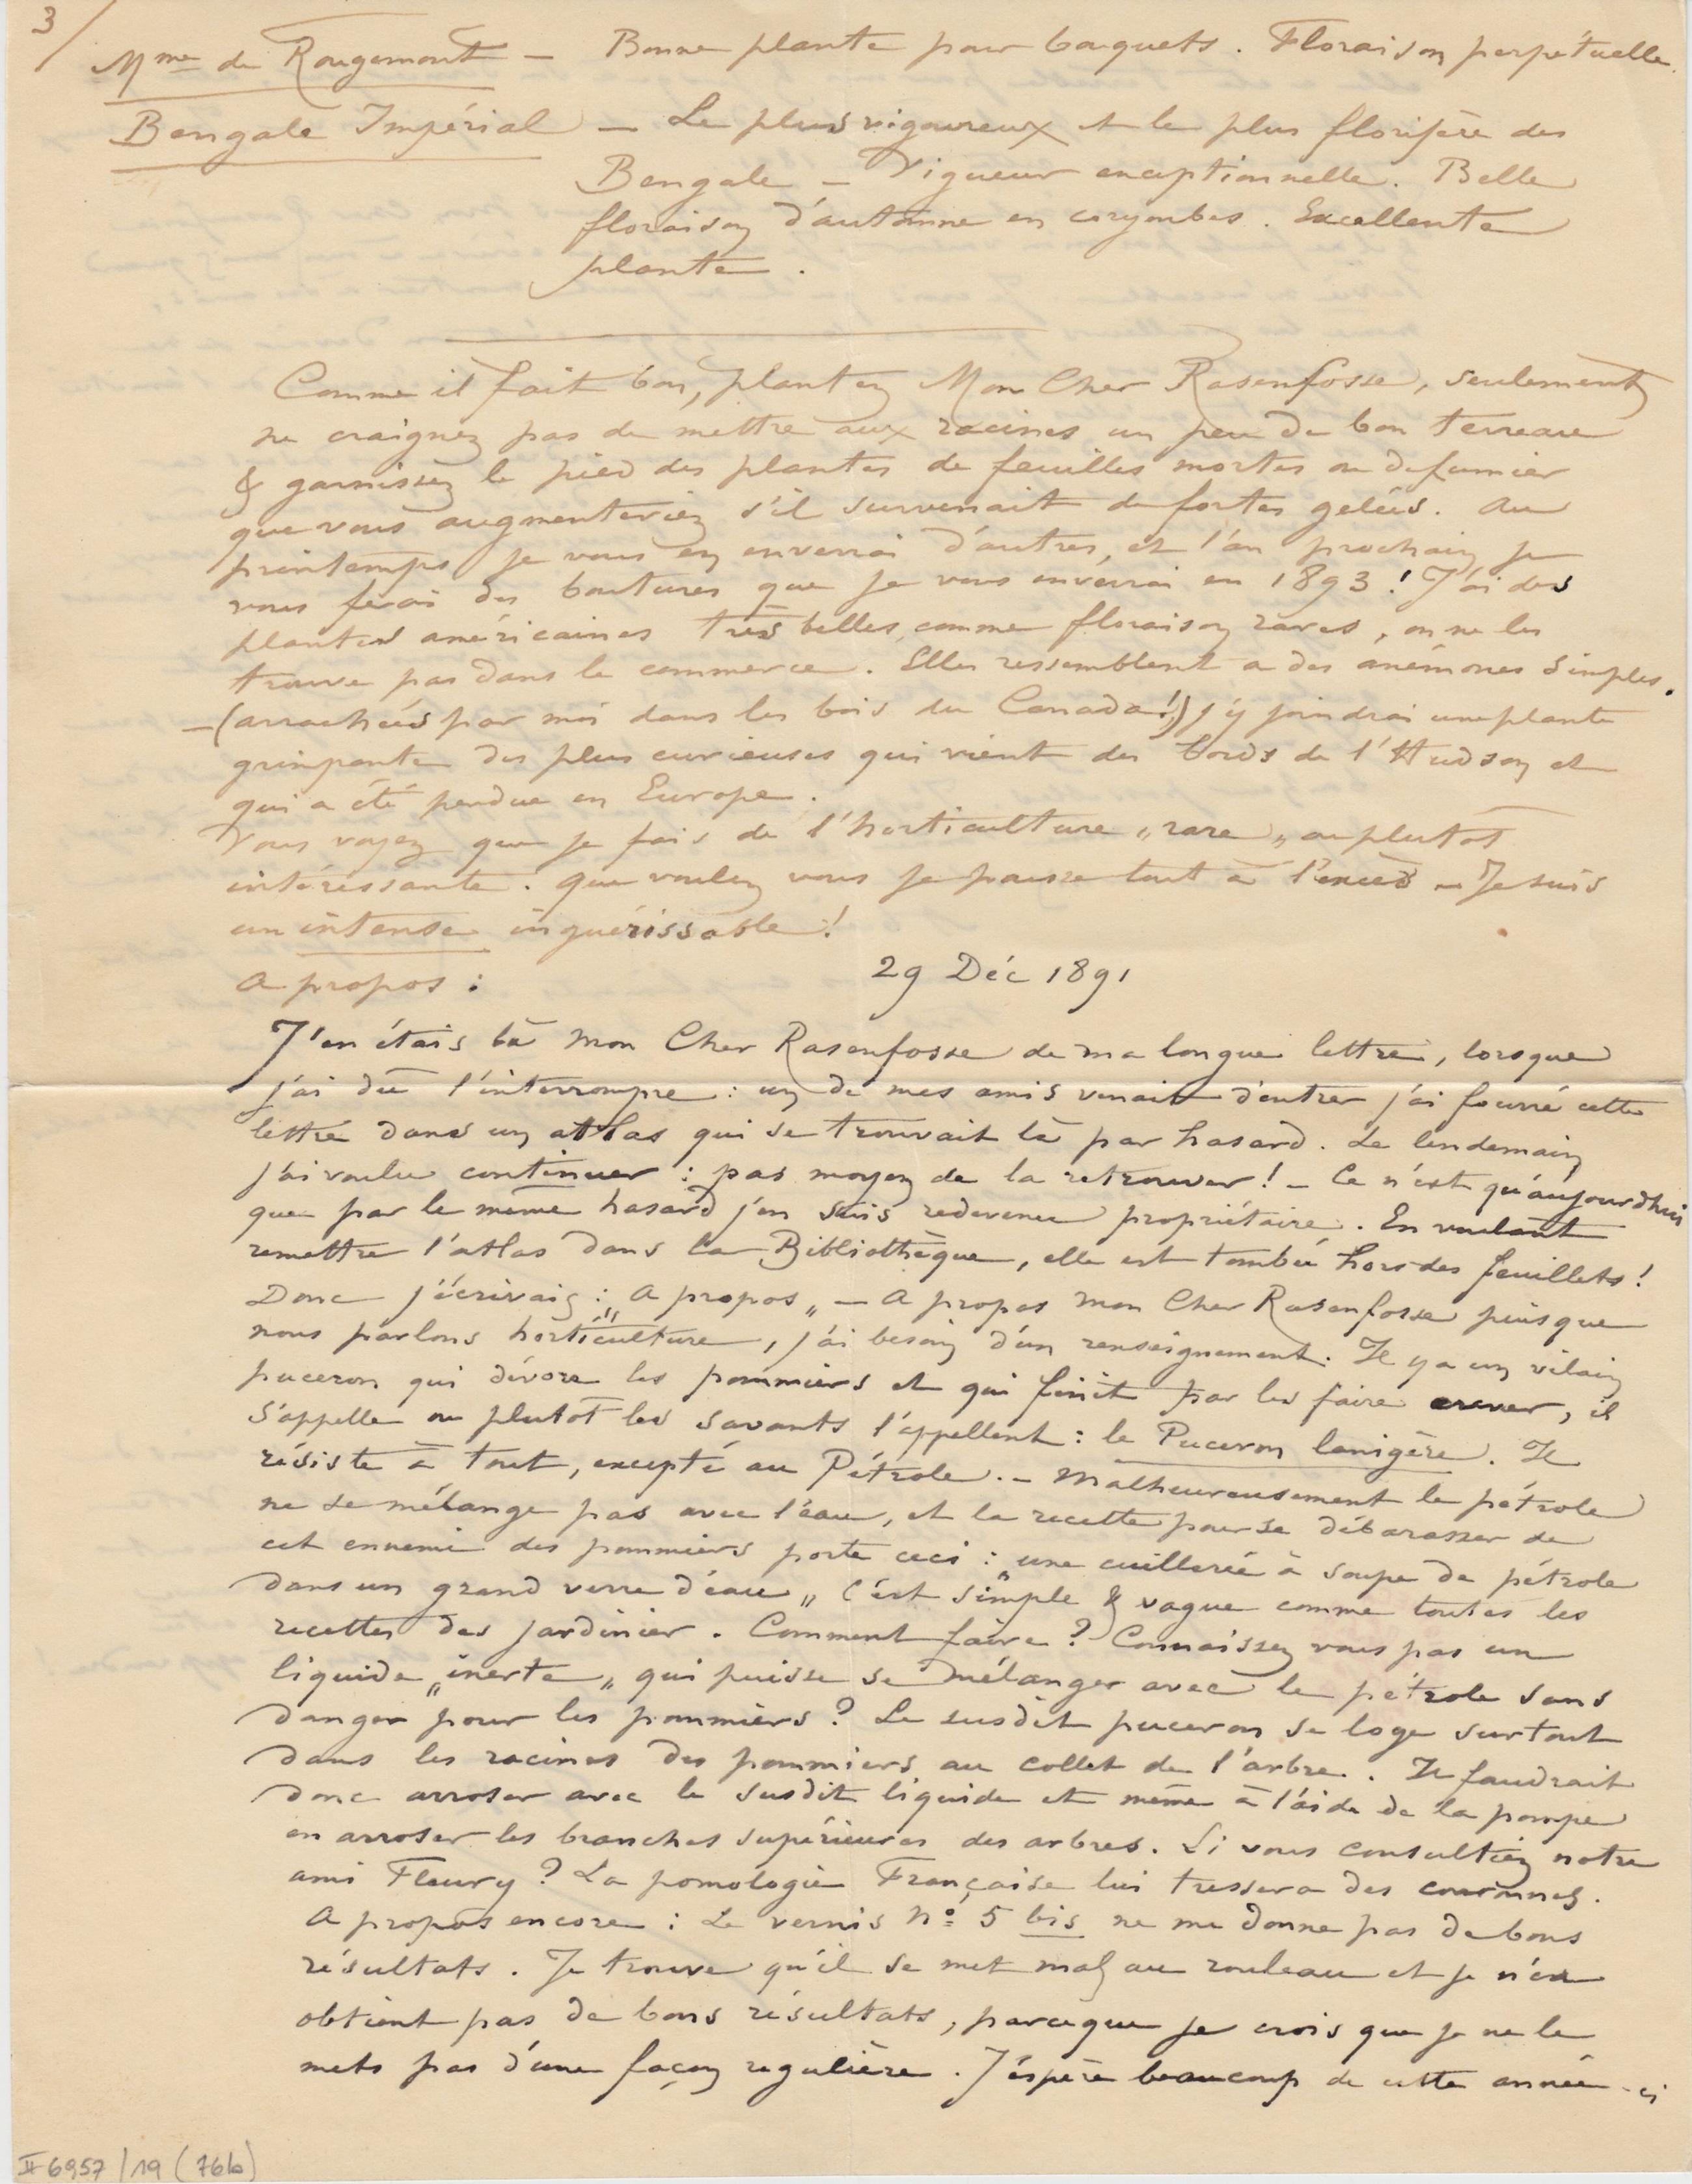 3/
Mme de Rougemont — Bonne plante pour baquets. Floraison perpétuelle.
Bengale Impérial — Le plus vigoureux et le plus florifère des
Bengale — Vigueur exceptionnelle. Belle
floraison d'automne en corymbes. Excellente
plante.
Comme il fait bon, plantez Mon Cher Rasenfosse, seulement
ne craignez pas de mettre aux racines un peu de bon terreau
& garnissez le pied des plantes de feuilles mortes ou de fumier
que vous augmenteriez s'il survenait de fortes gelées. Au
printemps je vous en enverrai d'autres, et l'an prochain je
vous ferai des boutures que je vous enverrai en 1893! J'ai des
plantes américaines très belles, comme floraison rares, on ne les
trouve pas dans le commerce. Elles ressemblent a des anémones simples.
— (arrachées par moi dans les bois du Canada!) j'y joindrai une plante
grimpante des plus curieuses qui vient des bords de l'Hudson et
qui a été perdue en Europe.
Vous voyez que je fais de l'horticulture „rare„ ou plutôt
intéressante. que voulez vous je pousse tout à l'excès — Je suis
un intense inguérissable!
A propos :
29 Déc 1891
J'en étais là mon Cher Rasenfosse de ma longue lettre, lorsque
j'ai dû l'interrompre : un de mes amis venait d'entrer j'ai fourré cette
lettre dans un atlas qui se trouvait là par hasard. Le lendemain
j'ai voulu continuer : pas moyen de la retrouver! — Ce n'est qu'aujourdhui
que par le même hasard j'en suis redevenu propriétaire. En voulant
remettre l'atlas dans la Bibliothèque, elle est tombée hors des feuillets!
Donc j'écrivais : „A propos„ — A propos mon Cher Rasenfosse puisque
nous parlons horticulture, j'ai besoin d'un renseignement : Il y a un vilain
puceron qui dévore les pommiers et qui finit par les faire crever, il
s'appelle ou plutôt les savants l'appellent : le Puceron lanigère. Il
résiste à tout, excepté au Pétrole. — Malheureusement le pétrole
ne se mélange pas avec l'eau, et la recette pour se débarasser de
cet ennemi des pommiers porte ceci : „une cuillerée à soupe de pétrole
dans un grand verre d'eau„ C'est simple & vague comme toutes les
recettes des jardinier. Comment faire? Connaissez vous pas un
liquide „inerte„ qui puisse se mélanger avec le pétrole sans
danger pour les pommiers? Le susdit puceron se loge surtout
dans les racines des pommiers au collet de l'arbre. Il faudrait
donc arroser avec le susdit liquide et même à l'aide de la pompe
en arroser les branches supérieures des arbres. Si vous consultiez notre
ami Fleury? La pomologie Française lui tressera des couronnes.
A propos encore : Le vernis No 5 bis ne me donne pas de bons
résultats. Je trouve qu'il se met mal au rouleau et je n'en
obtient pas de bons résultats, parceque je crois que je ne le
mets pas d'une façon regulière. J'espère beaucoup de cette année-ci
II 6957/19 (76b)